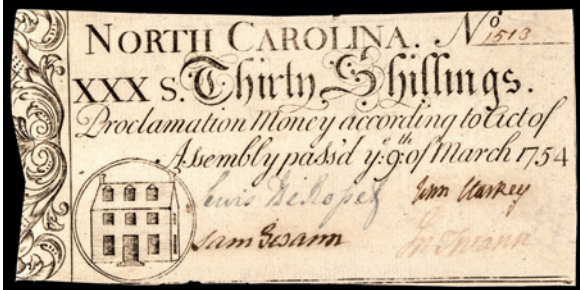 NORTH CAROLINA. No 1513
XXX S. Thirty Shillings.
Proclamation Money according to Act of
Assembly pass'd ye. 9th: of March 1754
Lewis DeRosset John Starkey
Sam Swann Jno Swann